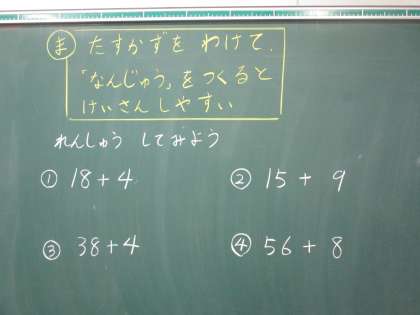 ま たすかずを わけて、
「なんじゅう」を つくると
けいさん しやすい
れんしゅう してみよう
① 18+4 ② 15+9
③ 38+4 ④ 56+8